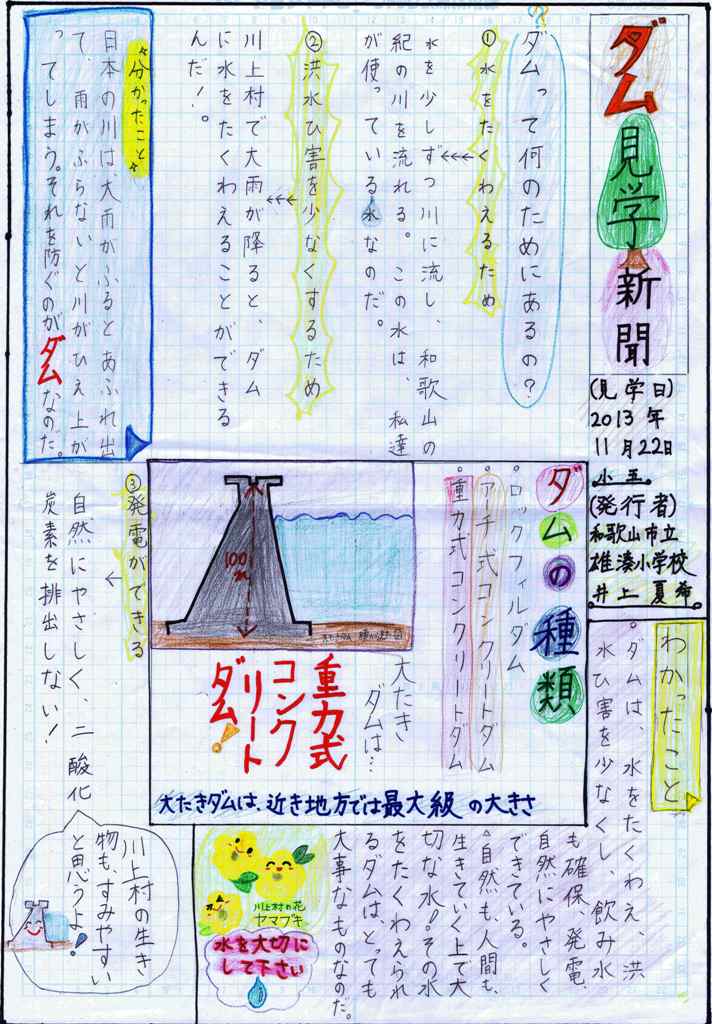 ダム見学新聞
(見学日)
2013年
11月22日
小五。
(発行者)
和歌山市立
雄湊小学校
井上 夏希。
ダムって何のためにあるの?
①水をたくわえるため
水を少しずつ川に流し、和歌山の
紀の川を流れる。この水は、私達
が使っている水なのだ。
②洪水ひ害を少なくするため
川上村で大雨が降ると、ダム
に水をたくわえることができる
んだ!。
分かったこと
日本の川は、大雨がふるとあふれ出
て、雨がふらないと川がひえ上が
ってしまう。それを防ぐのが
ダムなのだ。
ダムの種類
・ロックフィルダム
・アーチ式コンクリートダム
・重力式コンクリートダム
100m
大たき
ダムは…
重力式
コンク
リート
ダム!
大たきダムは、近き地方では最大級の大きさ
③発電ができる
自然にやさしく、二酸化
炭素を排出しない!
川上村の生き
物も、すみやすい
と思うよ!
わかったこと
。ダムは、水をたくわえ、洪
水ひ害を少なくし、飲み水
も確保、発電、
自然にやさしく
できている。
。自然も、人間も、
生きていく上で大
切な水!その水
をたくわえられ
るダムは、とっても
大事なものなのだ。
川上村の花
ヤマブキ
水を大切に
して下さい